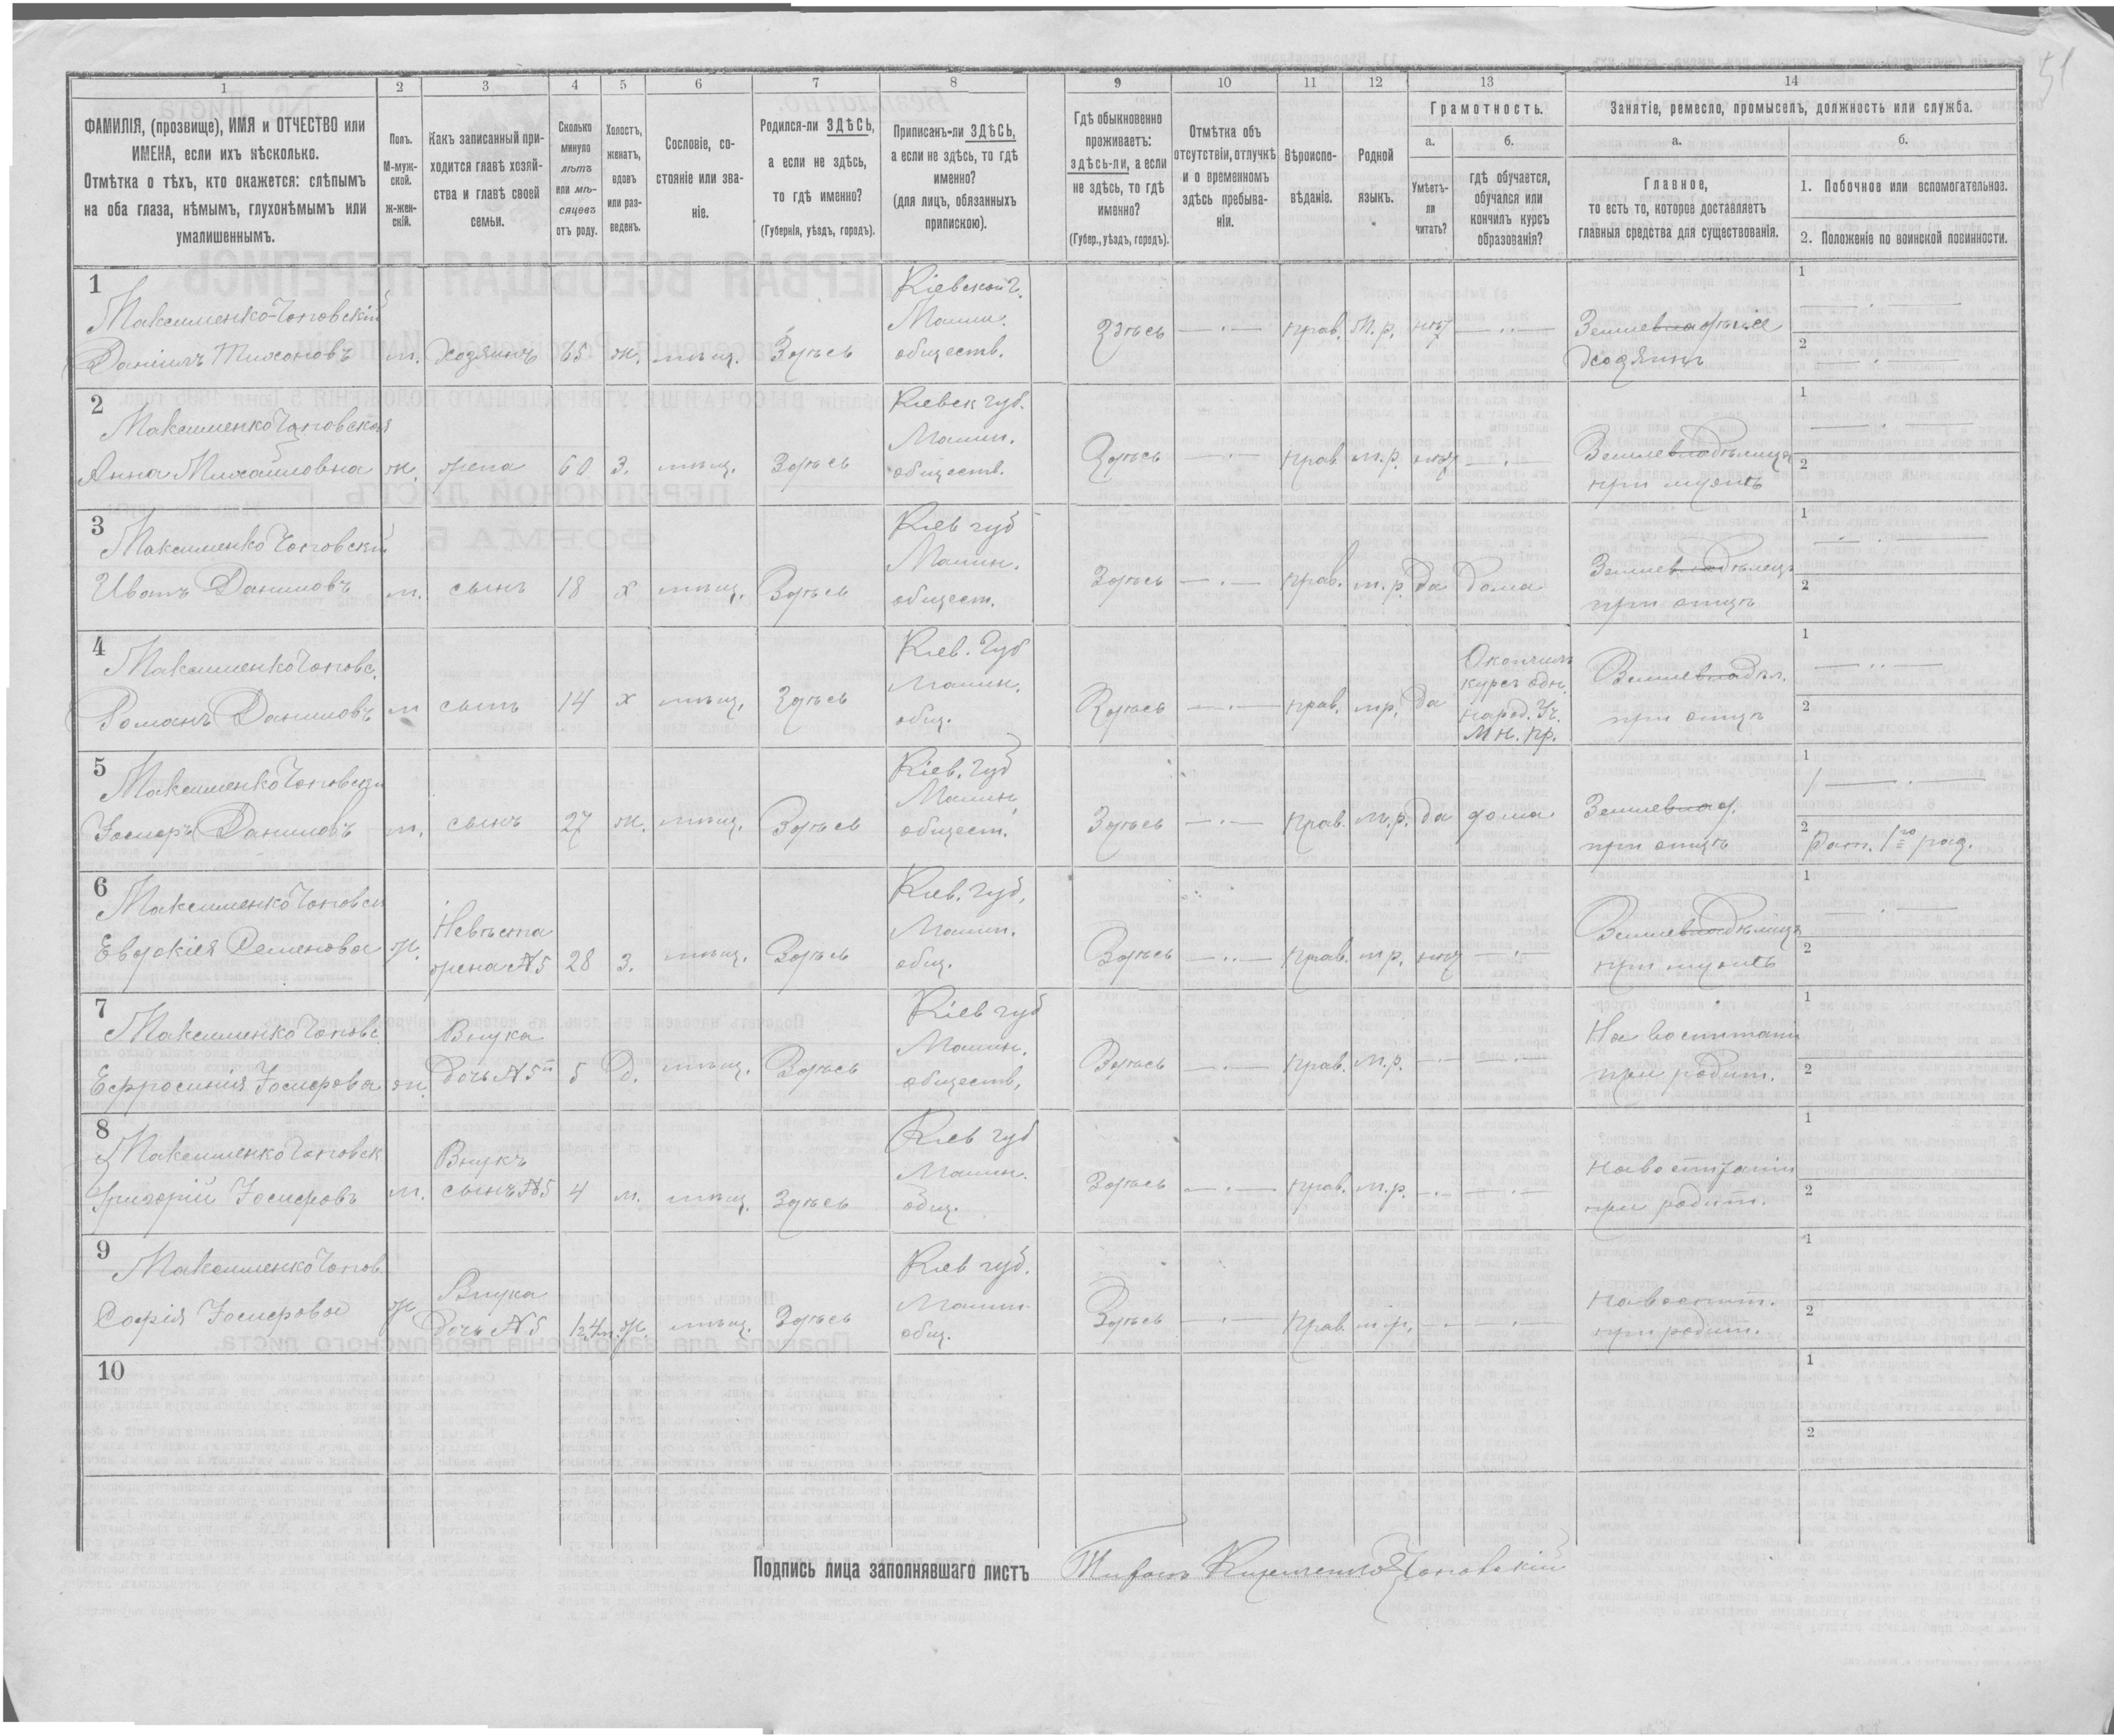 51
1 2 3 4 5 6 7 8 9 10 11 12 13 14
ФАМИЛІЯ, (прозвище), ИМЯ и ОТЧЕСТВО или
ИМЕНА, если ихъ нѣсколько.
Отмѣтка о тѣхъ, кто окажется: слѣпымъ
на оба глаза, нѣмымъ, глухонѣмымъ или
умалишеннымъ.
Полъ.
М-муж-
ской.
ж-жен-
скій.
Какъ записанный при-
ходится главѣ хозяй-
ства и главѣ своей
семьи.
Сколько
минуло
лѣтъ
или мѣ-
сяцевъ
отъ роду.
Холостъ,
женатъ,
вдовъ
или раз-
веденъ.
Сословіе, со-
стояніе или зва-
ніе.
Родился-ли ЗДѢСЬ,
а если не здѣсь,
то гдѣ именно?
(Губернія, уѣздъ, городъ).
Приписанъ-ли ЗДѢСЬ,
а если не здѣсь, то гдѣ
именно?
(для лицъ, обязанныхъ
припискою).
Гдѣ обыкновенно
проживаетъ:
здѣсь-ли, а если
не здѣсь, то гдѣ
именно?
(Губер., уѣздъ, городъ).
Отмѣтка объ
отсутствіи, отлучкѣ
и о временномъ
здѣсь пребыва-
ніи.
Вѣроиспо-
вѣданіе.
Родной
языкъ.
Грамотность.
а.
Умѣетъ-
ли
читать?
б.
гдѣ обучается,
обучался или
кончилъ курсъ
образованія?
Занятіе, ремесло, промыселъ, должность или служба.
а.
Главное,
то есть то, которое доставляетъ
главныя средства для существованія.
б.
1. Побочное или вспомогательное.
2. Положеніе по воинской повинности.
1
Максименко-Чоповскій
Даніилъ Тихоновъ м. Хозяинъ 65 ж. мѣщ. Здѣсь
Кіевской г.
Малин.
обществ.
Здѣсь — . — прав. М.р. нѣт — .. —
Землевладѣніе
Хозяинъ
1 — . —
2 — . —
2
Максименко Чоповская
Анна Михайловна ж. жена 60 З. мѣщ. Здѣсь
Кіевск губ.
Малин.
обществ.
Здѣсь — . — прав м.р. нѣт — . —
Землевладѣлица
при мужѣ
1 — . —
2
3
Максименко Чоповскій
Иванъ Даниловъ м. сынъ 18 х мѣщ. Здѣсь
Кіев губ
Малин.
общест.
Здѣсь — . — прав. м.р. да дома
Землевладѣлецъ
при отцѣ
1 — . —
2
4
Максименко Чоповс.
Романъ Даниловъ м сынъ 14 х мѣщ. Здѣсь
Кіев. Губ
Малин.
общ.
Здѣсь — . — прав. м.р. да
Окончилъ
курсъ одн.
народ. Уч.
М н. пр.
Землевладѣл.
при отцѣ
1 — .. —
2
5
Максименко Чоповскій
Іосифъ Даниловъ м. сынъ 27 ж. мѣщ. Здѣсь
Кіев. Губ
Малин.
общест.
Здѣсь — . — прав. м.р. да дома
Землевлад.
при отцѣ
1 — . —
2 Рат. 1го раз.
6
Максименко Чоповск
Евдокія Семенова ж.
Невѣста
жена №5 28 З. мѣщ. Здѣсь
Кіев. губ.
Малин.
общ.
Здѣсь — .. — прав. м р. нѣт — . —
Землевладѣлица
при мужѣ
1 — . —
2
7
Максименко Чоповс
Ефросинія Іосифова ж.
Внука
дочь №5й 5 Д. мѣщ. Здѣсь
Кіев губ
Малин.
обществ.
Здѣсь — . — прав. м.р. — . — — . —
На воспитаніи
при родит.
1
2
8
Максименко Чоповск
Григорій Іосифовъ м.
Внукъ
сынъ №5 4 м. мѣщ. Здѣсь
Кіев губ
Малин.
общ.
Здѣсь — . — прав. м.р. — . — — . —
На воспитаніи
при родит.
1
2
9
Максименко Чопов
Софія Іосифова ж
Внука
дочь №5 ж. мѣщ. Здѣсь
Кіев губ.
Малин.
общ.
Здѣсь — . — прав. м.р. — . — — . —
На воспит.
при родит.
1
2
10
1
2
Подпись лица заполнявшаго листъ Чоповскій